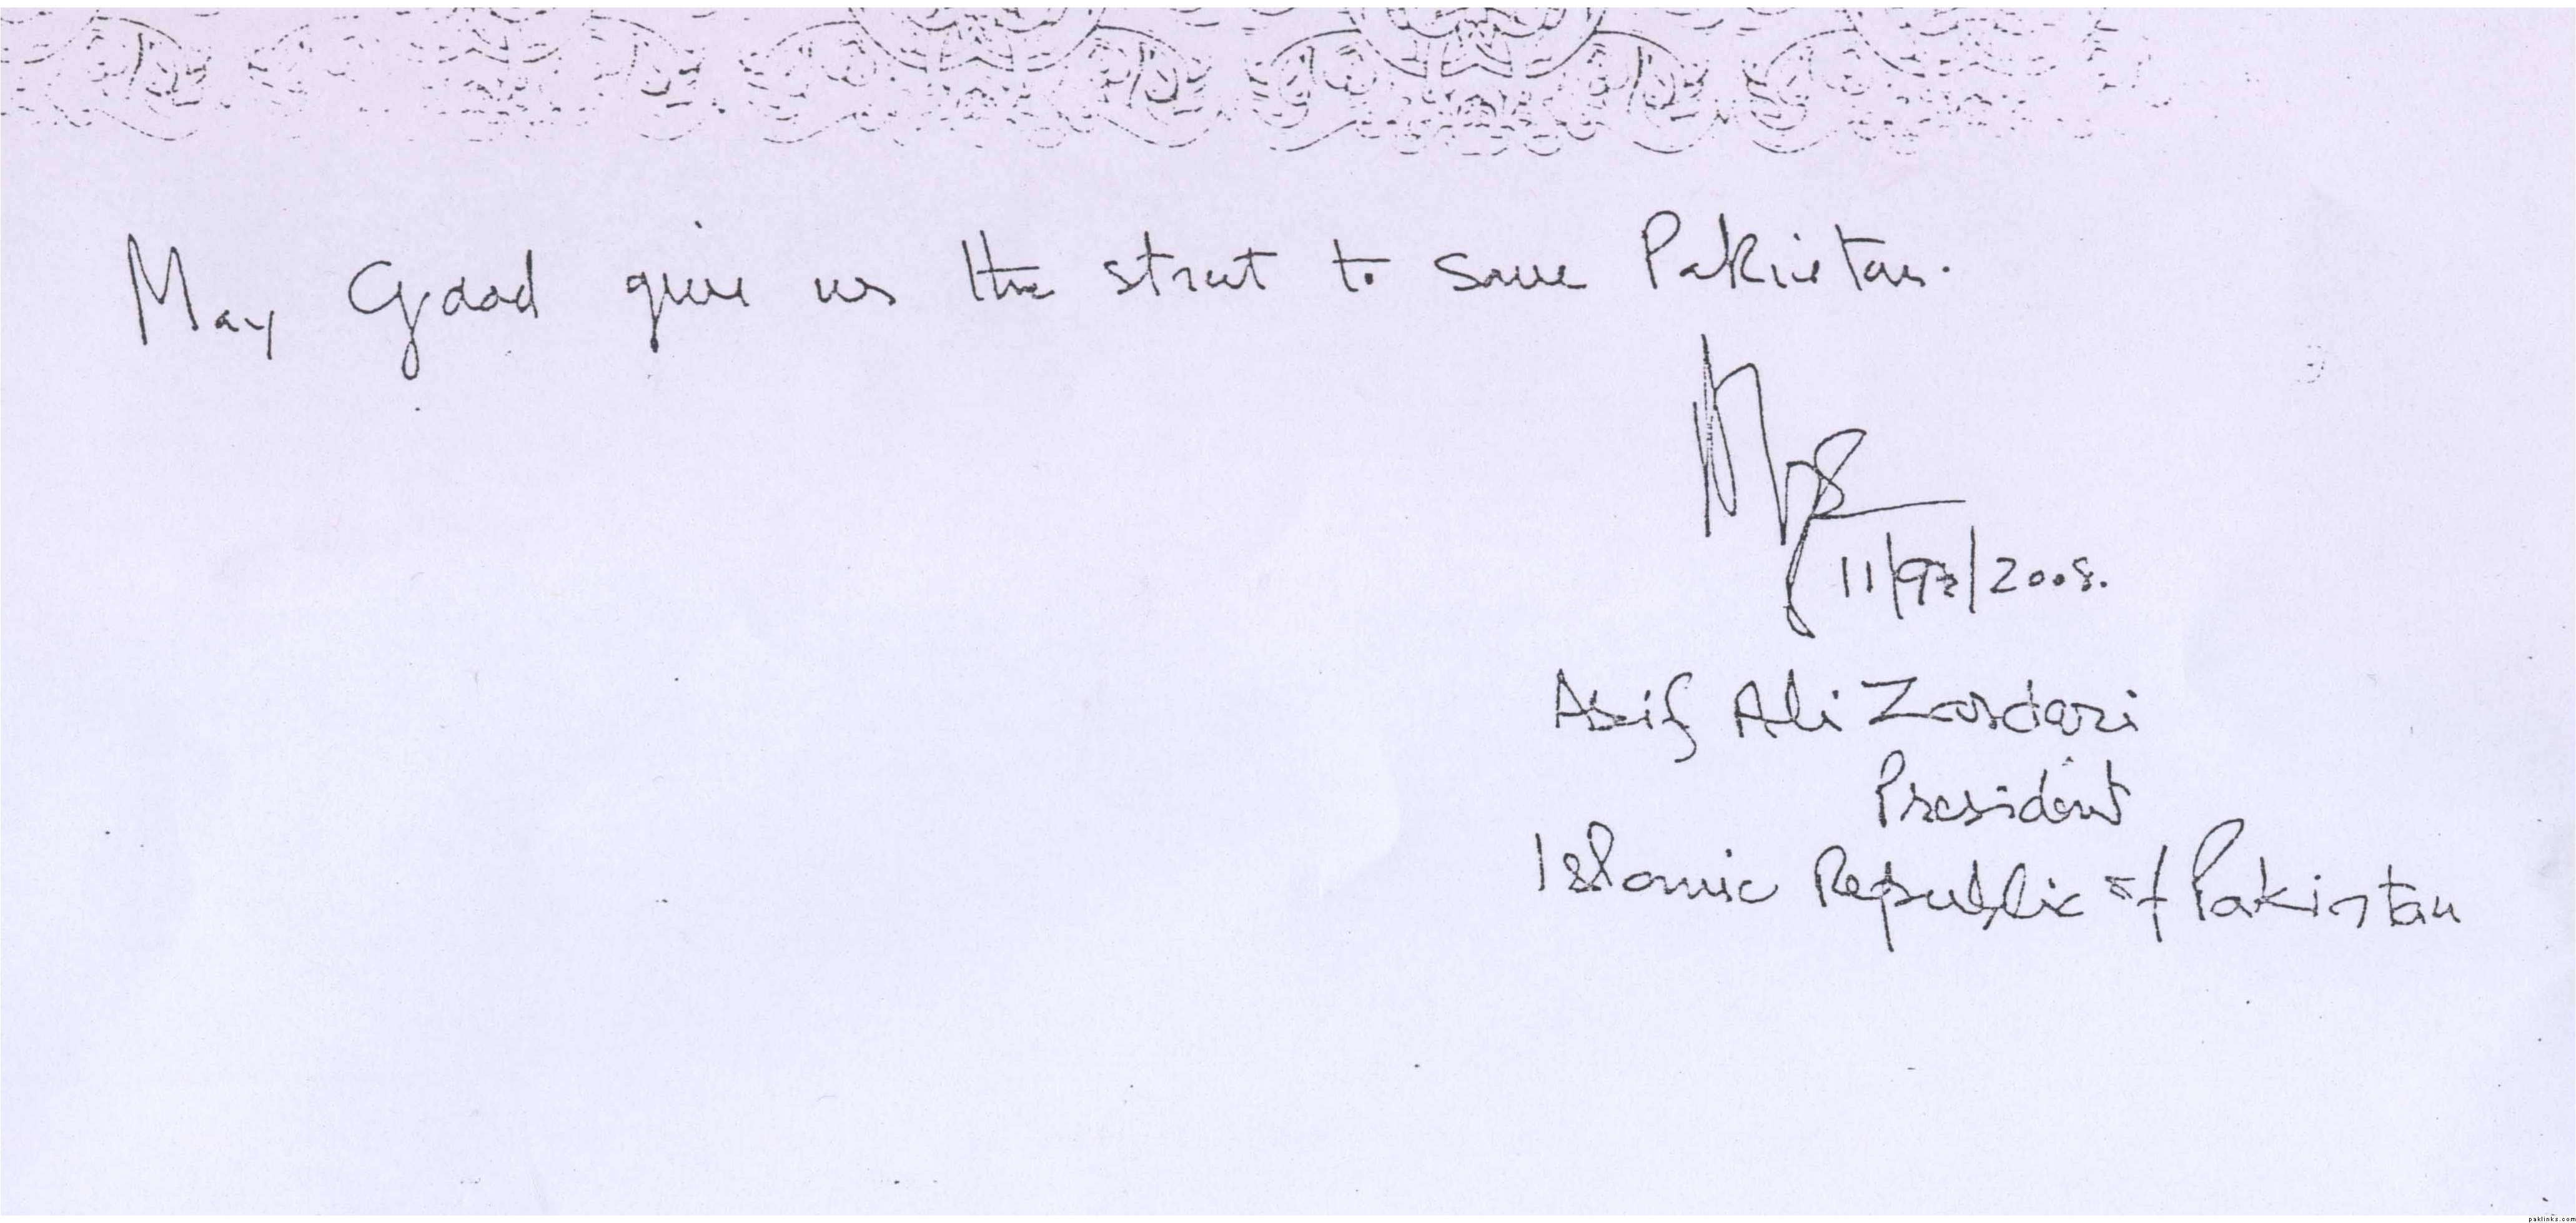 May Goad give us the strut to save Pakistan.
11/9/2008.
Asif Ali Zardari
President
Islamic Republic of Pakistan
paklinks.com